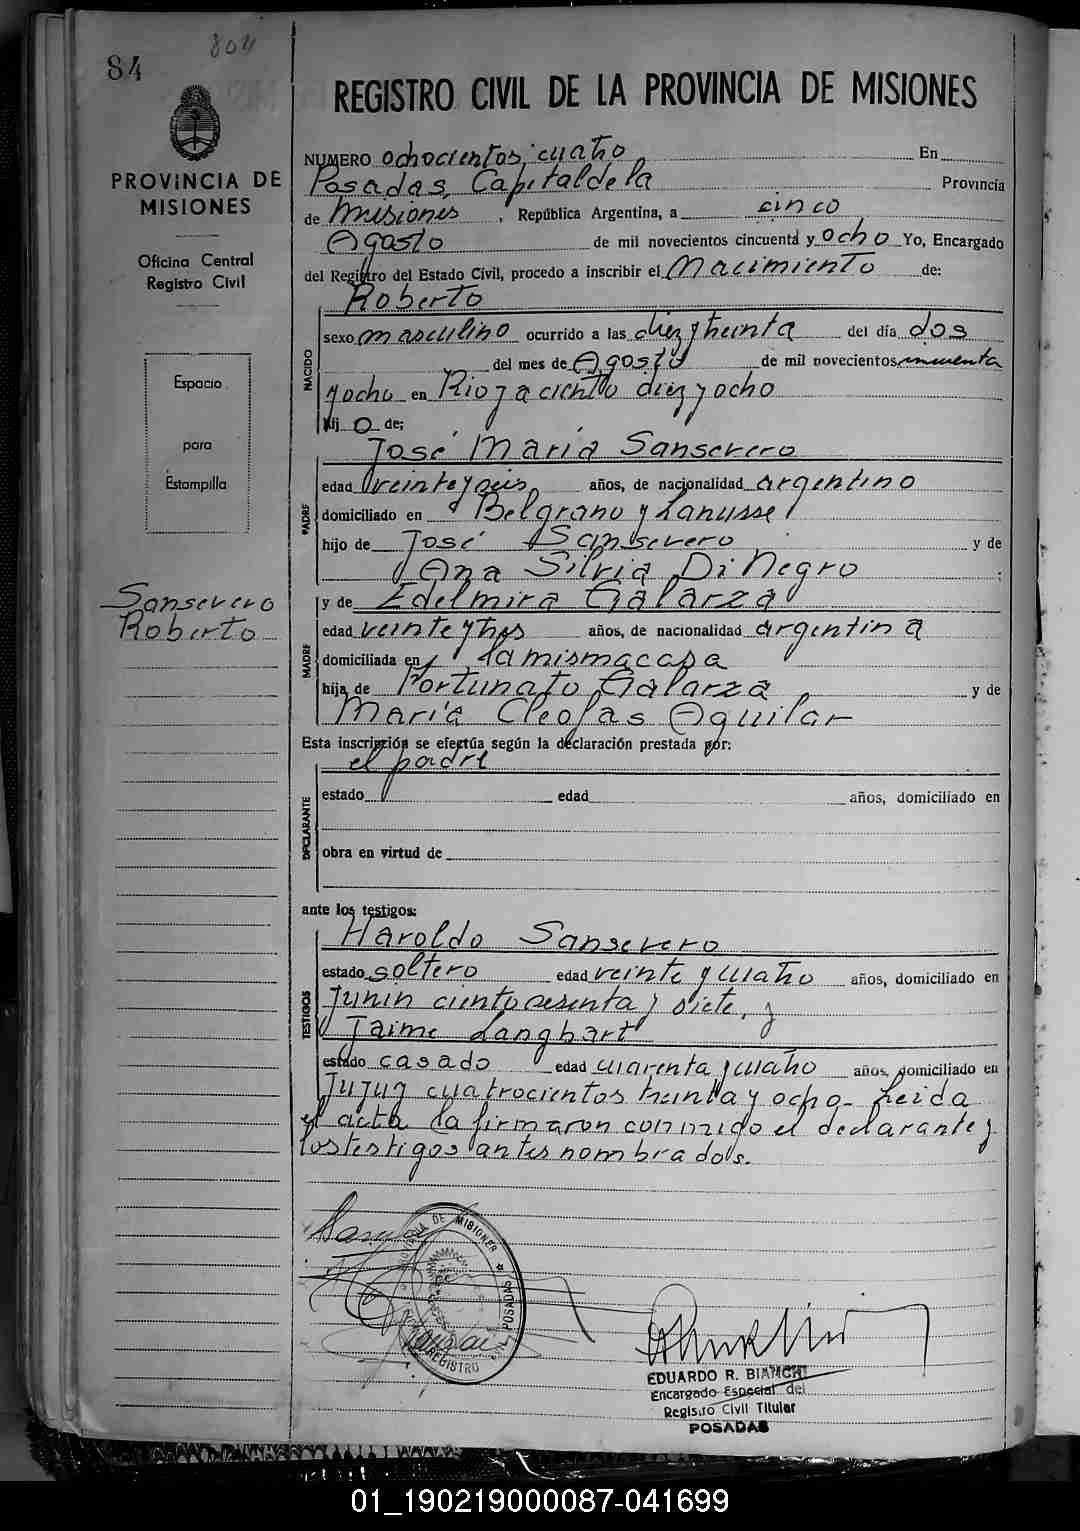 84
804
REGISTRO CIVIL DE LA PROVINCIA DE MISIONES
PROVINCIA DE
MISIONES
Oficina Central
Registro Civil
Espacio
para
Estampilla
Sansevero
Roberto
NUMERO ochocientos cuatro En
Posadas, Capital de la Provincia
de Misiones, República Argentina, a cinco
Agosto de mil novecientos cincuenta y ocho Yo, Encargado
del Registro del Estado Civil, procedo a inscribir el Nacimiento de:
Roberto
NACIDO
sexo masculino ocurrido a las diez y treinta del día dos
del mes de Agosto de mil novecientos cincuenta
y ocho en Rioja ciento diez y ocho
hij o de;
José María Sansevero
PADRE
edad veinte y seis años, de nacionalidad argentino
domiciliado en Belgrano y Lanusse
hijo de José Sansevero y de
Ana Silvia Di Negro
y de Edelmira Galarza
MADRE
edad veinte y tres años, de nacionalidad argentina
domiciliada en la misma casa
hija de Fortunato Galarza y de
María Cleofas Aguilar
Esta inscripción se efectúa según la declaración prestada por:
el padre
DECLARANTE
estado edad años, domiciliado en
obra en virtud de
ante los testigos:
Haroldo Sansevero
TESTIGOS
estado soltero edad veinte y cuatro años, domiciliado en
Junin ciento sesenta y siete, y
Jaime Langhart
estado casado edad cuarenta y cuatro años, domiciliado en
Jujuy cuatrocientos treinta y ocho - Leida
el acta la firmaron conmigo el declarante y
los testigos antes nombrados.
PROVINCIA DE MISIONES
POSADAS
REGISTRO
EDUARDO R. BIANCHI
Encargado Especial del
Registro Civil Titular
POSADAS
01_190219000087-041699